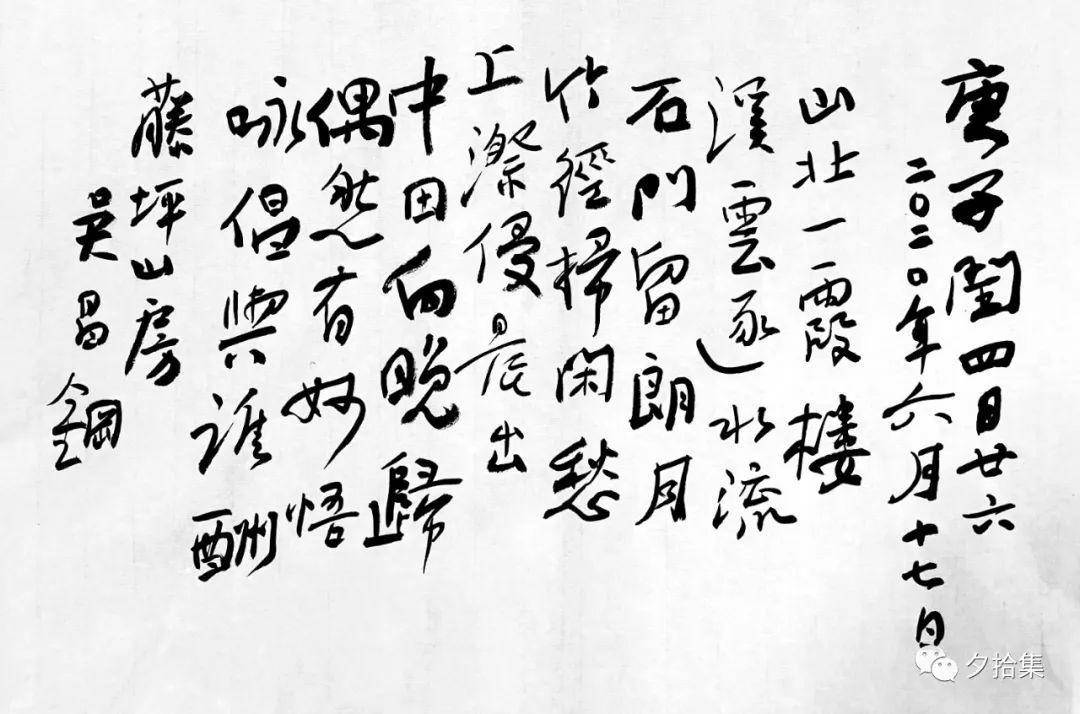 庚子閏四月廿六
二〇二〇年六月十七日
山北一霞樓
溪雲逐水流
石門留朗月
竹徑掃閑愁
上潔侵晨出
中田向晚歸
偶然有妙悟
咏倡與誰酬
藤坪山房
吴昌鋼
夕拾集